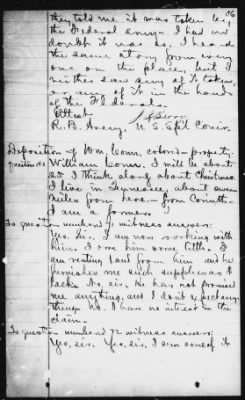 36
they told me it was taken by
the Federal army - I had no
doubt it was so. I heard
the same story from every
one on the place, but I
neither saw any of it taken,
or any of it in the hands
of the Federals.
Attest
R. B. Avery, U S Spcl Comr.
Deposition of Wm. Conn, colored - property:
question 48
William Conn. I will be about
I think along about Christmas
I live in Tennessee, about seven
miles from here - from Corinth -
I am a farmer.
To question numbered 2 witness answers:
Yes, sir, I am now working with
him. I owe him some little. I
am renting land from him and he
furnishes me such supplies as I
lack. No, sir. He has not promised
me anything, and I don't expect any-
thing. No. I have no interest in the
claim.
To question numbered 72 witness answers:
Yes, sir. Yes, sir, I saw some of it